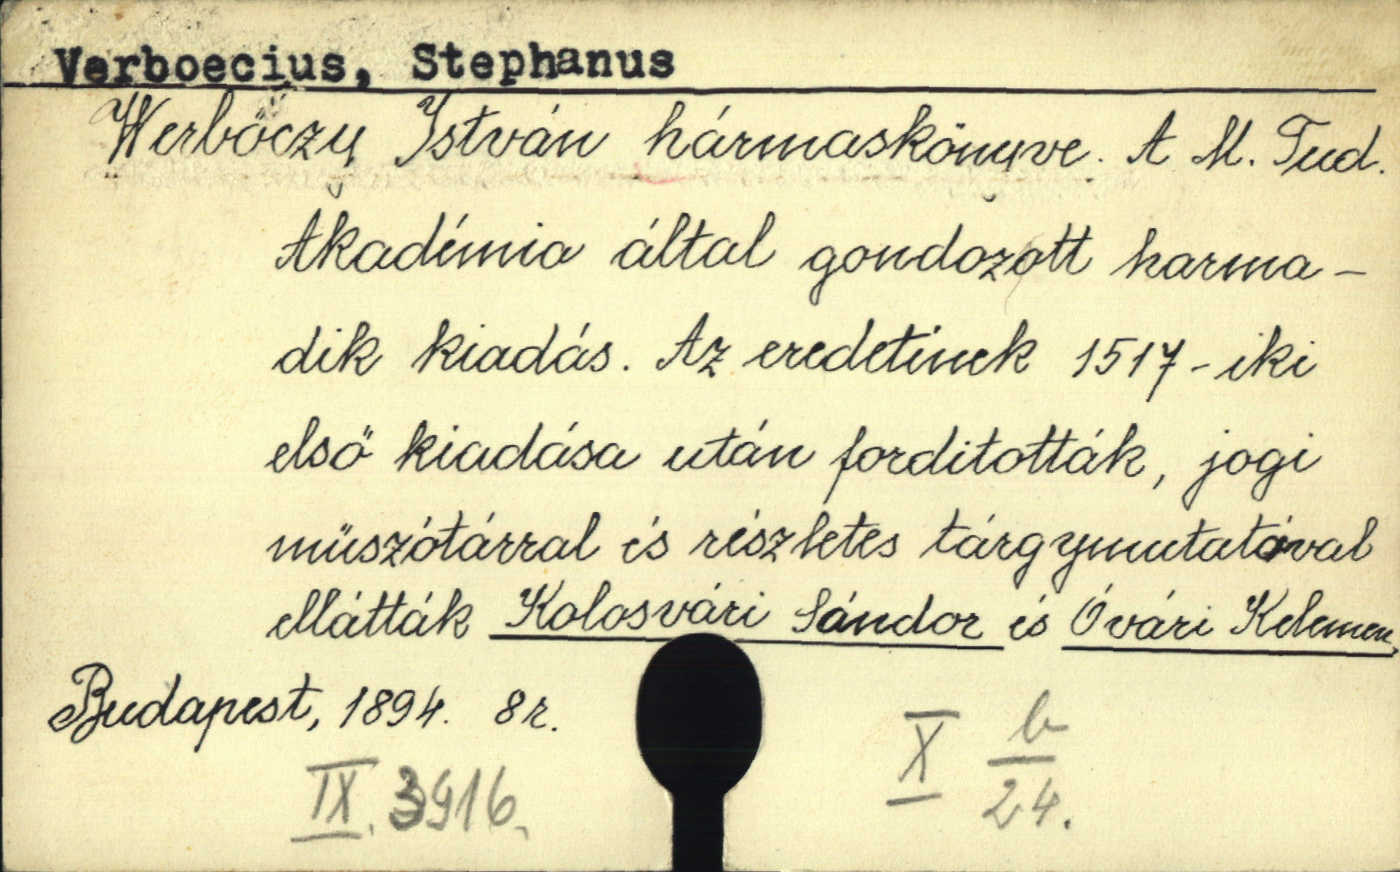 Verboecius, Stephanus
Werbőczy István hármaskönyve. A M. Tud.
Akadémia által gondozott harma-
dik kiadás. Az eredetinek 1517-iki
első kiadása után forditották, jogi
müszótárral és részletes tárgymutatóval
ellátták Kolosvári Sándor és Óvári Kelemen.
Budapest, 1894. 8r.
X b/24.
IX. 3916.